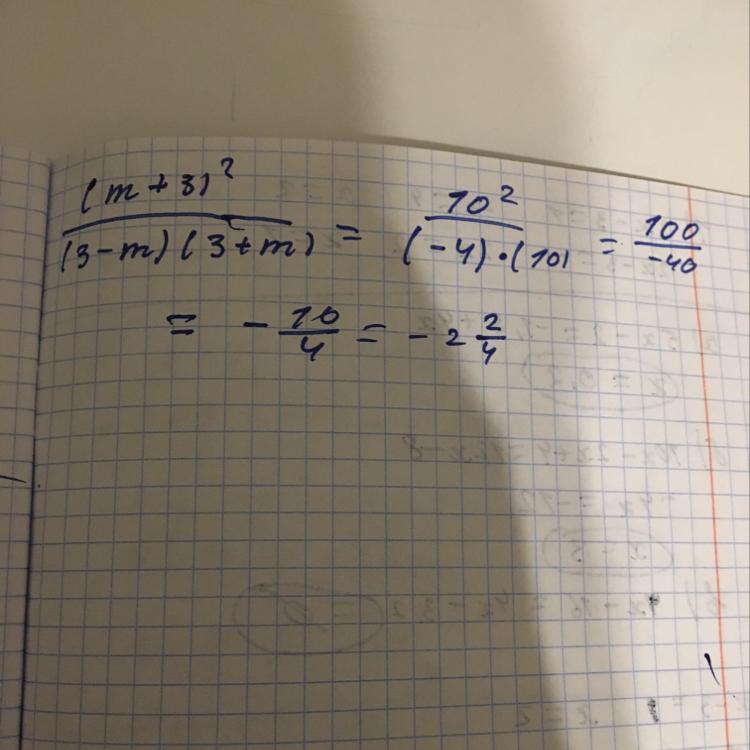 (m+3)² / (3-m)(3+m) = 10² / (-4)·(10) = 100 / -40
= - 10/4 = - 2 2/4